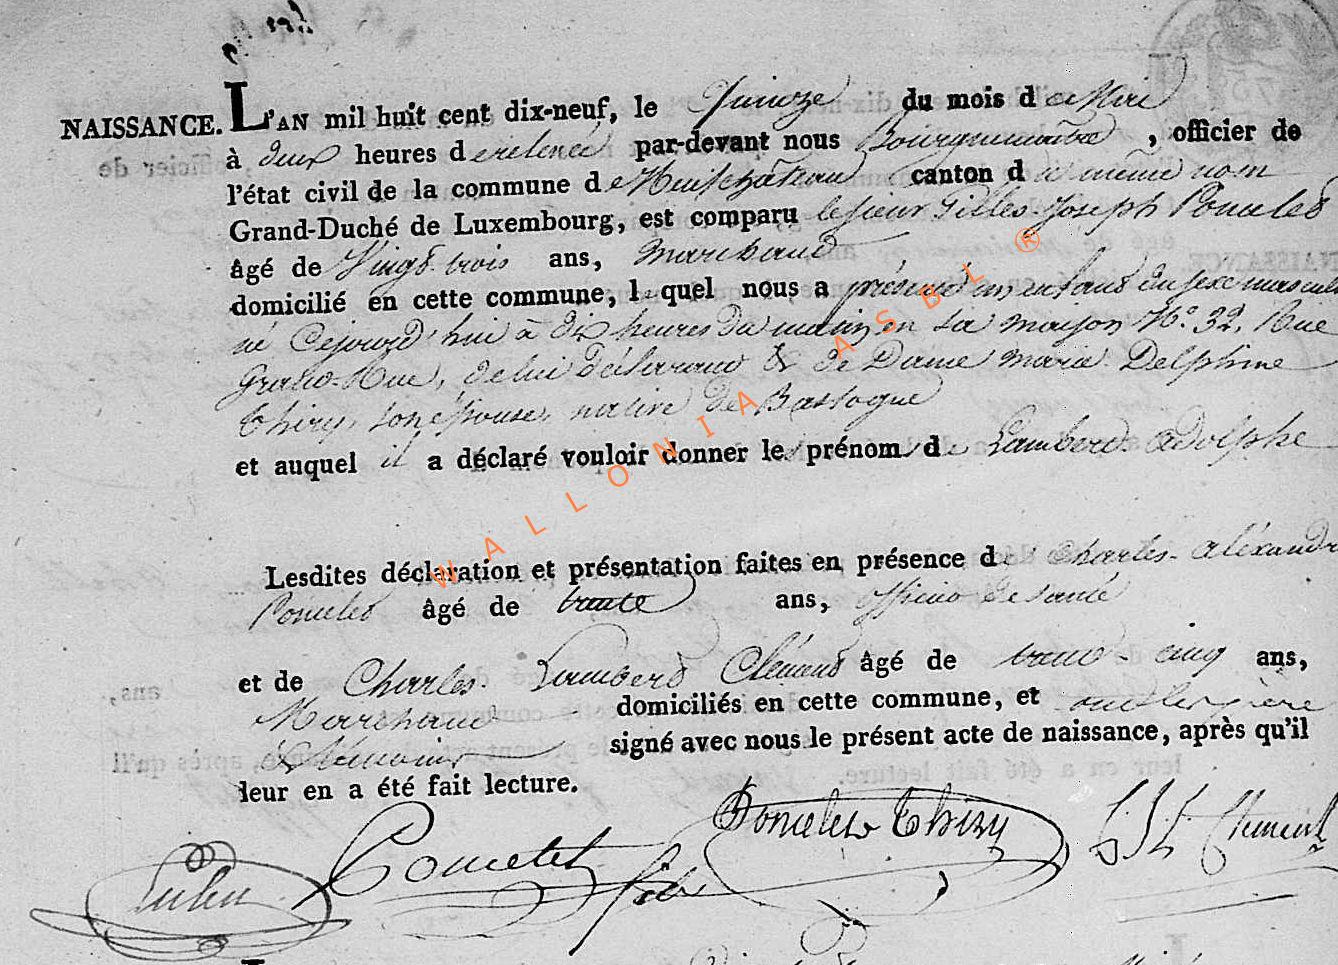 NAISSANCE. L'AN mil huit cent dix-neuf, le Quinze du mois d'avril
à deux heures de relevé par-devant nous Bourguemaitre, officier de
l'état civil de la commune de Neufchateau canton d u même nom
Grand-Duché de Luxembourg, est comparu le Sieur Gilles-Joseph Poncelet
âgé de Vingt-trois ans, marchand
domicilié en cette commune, lequel nous a présenté un enfant du sexe masculin
né Cejourd'hui à dix heures du matin en sa maison N.º 32. Rue
Grand-Rue, de lui déclarant & de Dame Marie Delphine
Thiry, son épouse, native de Bastogne
et auquel il a déclaré vouloir donner les prénoms de Lambert-Adolphe
Lesdites déclaration et présentation faites en présence de Charles-Aléxandre
Poncelet âgé de trente ans, officier de santé
et de Charles-Lambert Clément âgé de trente-cinq ans,
Marchand domiciliés en cette commune, et ont les père
& témoins signé avec nous le présent acte de naissance, après qu'il
leur en a été fait lecture.
Poncelet Thiry
Clément
Poncelet fils
WALLONIA ASBL ®